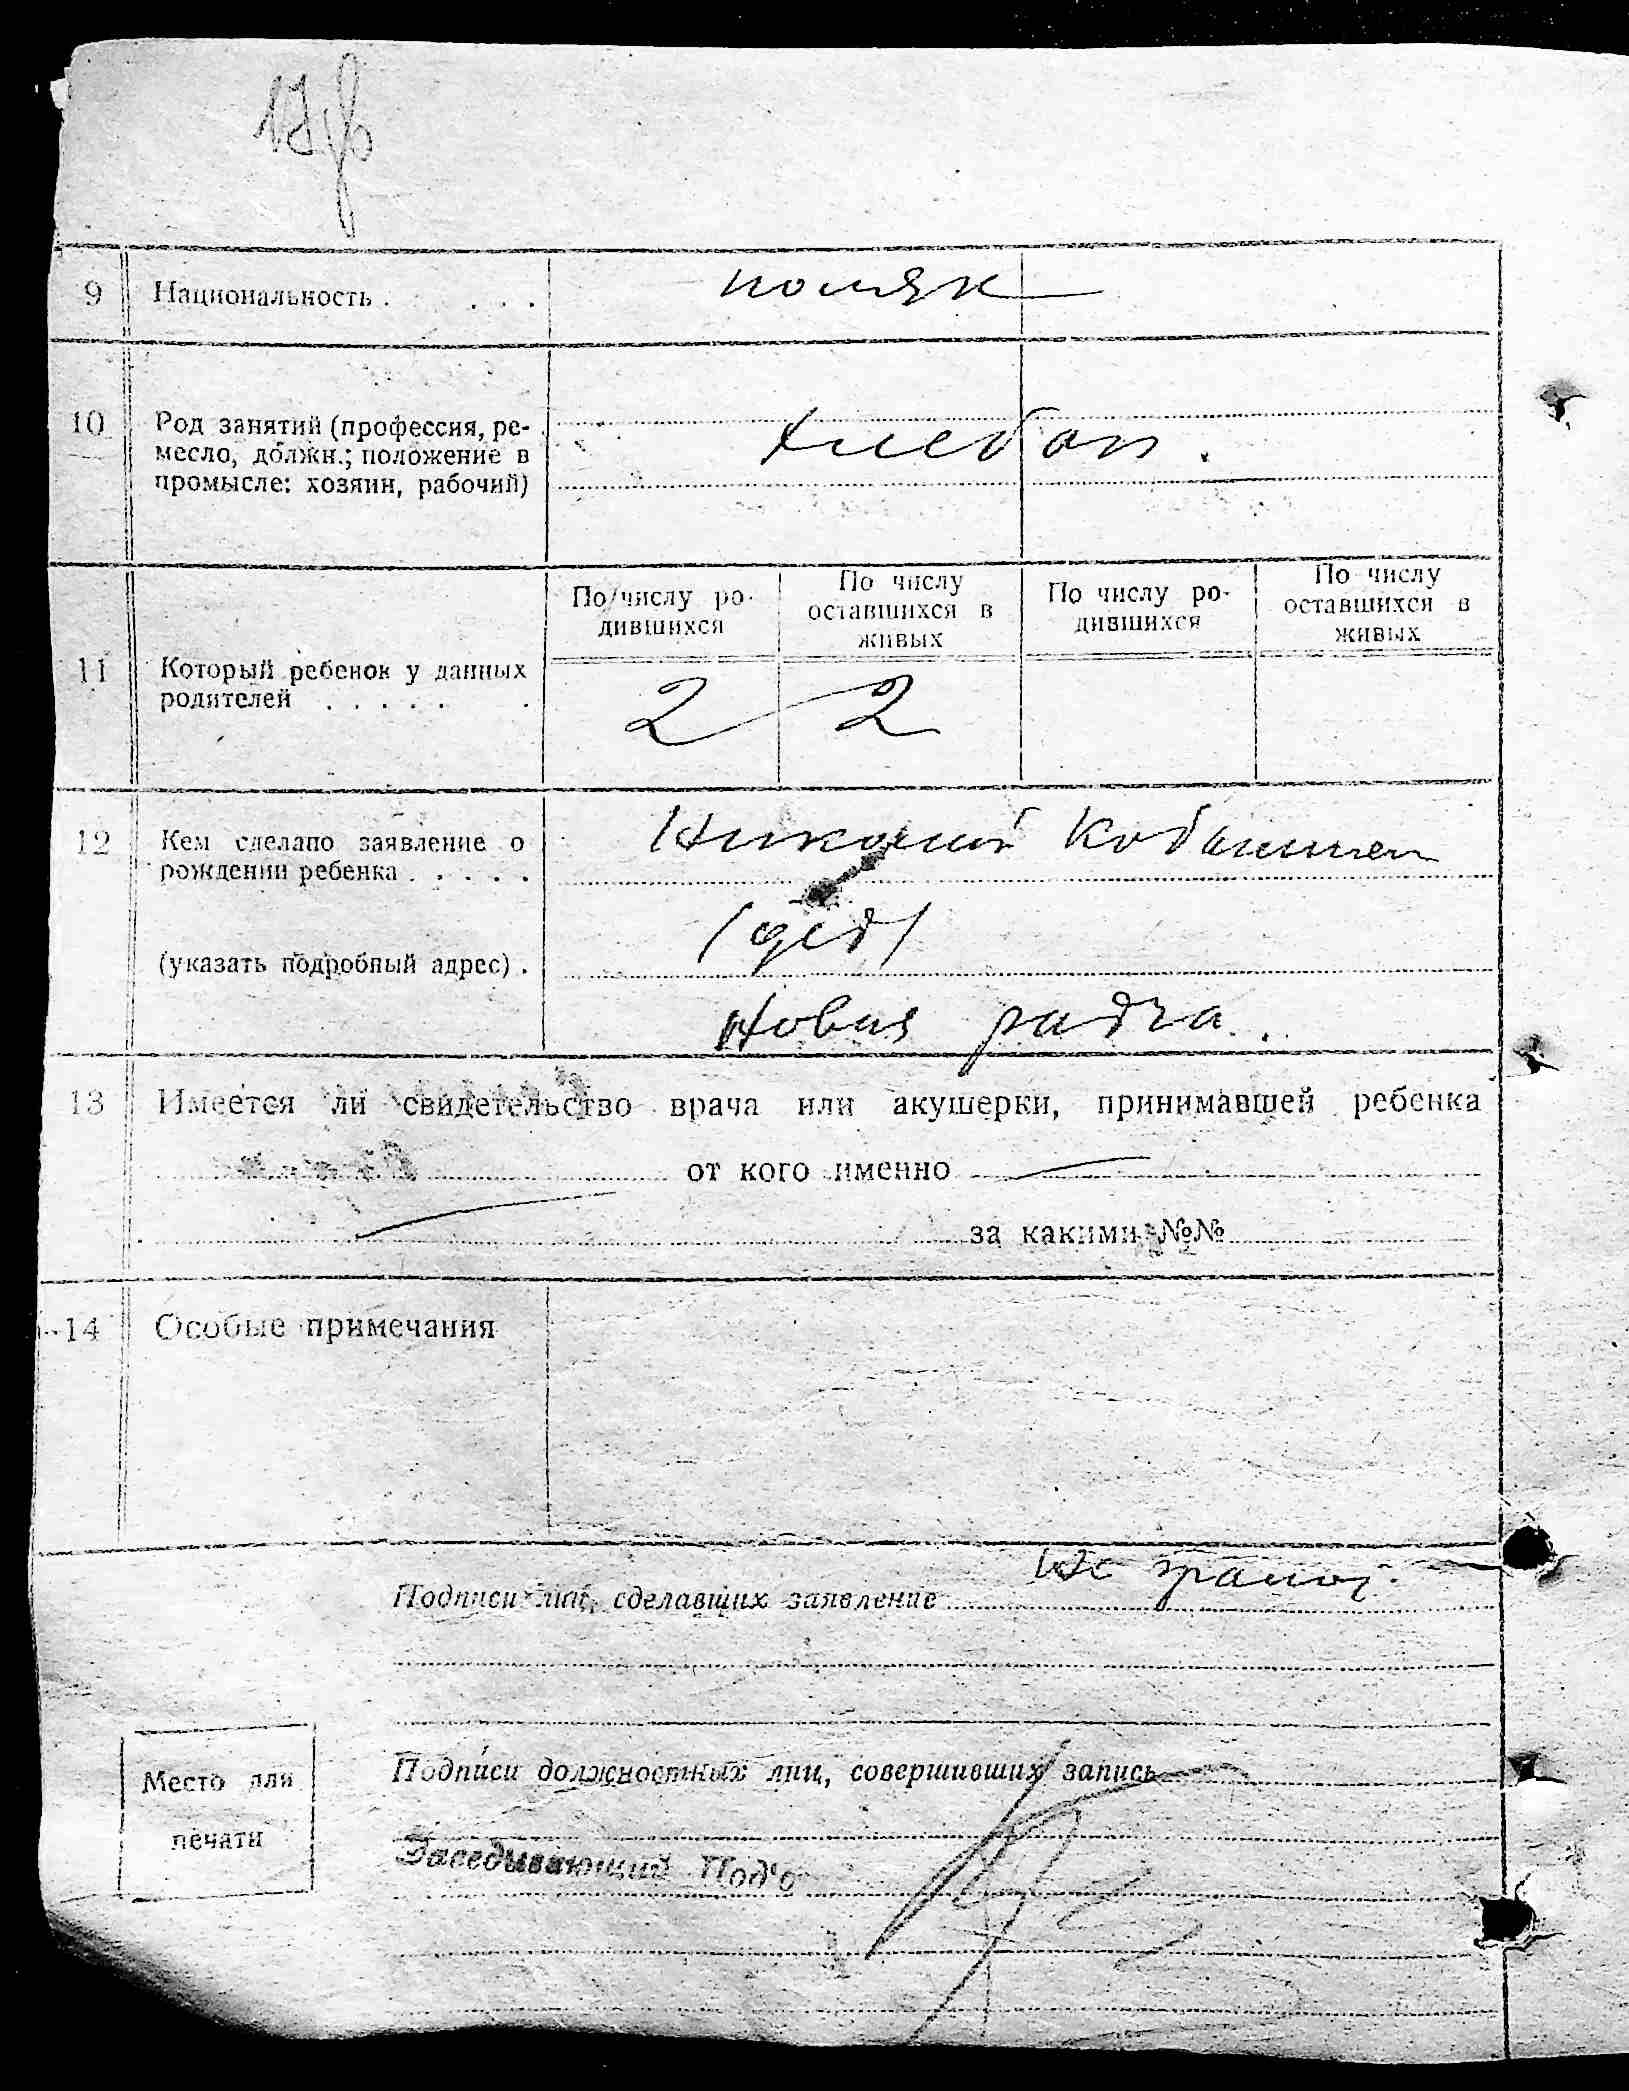 9 Национальность . . . . поляк
10 Род занятий (профессия, ре-
месло, должн.; положение в
промысле: хозяин, рабочий)
хлебоп.
По числу ро-
дившихся
По числу
оставшихся в
живых
По числу ро-
дившихся
По числу
оставшихся в
живых
11 Который ребенок у данных
родителей . . . . . .
2 2
12 Кем сделано заявление о
рождении ребенка . . . . .
Николай
(дед)
(указать подробный адрес) .
Новая радча.
13 Имеется ли свидетельство врача или акушерки, принимавшей ребенка
от кого именно
за какими №№
14 Особые примечания
Подписи лиц, сделавших заявление Не грамот.
Место для
печати
Подписи должностных лиц, совершивших запись